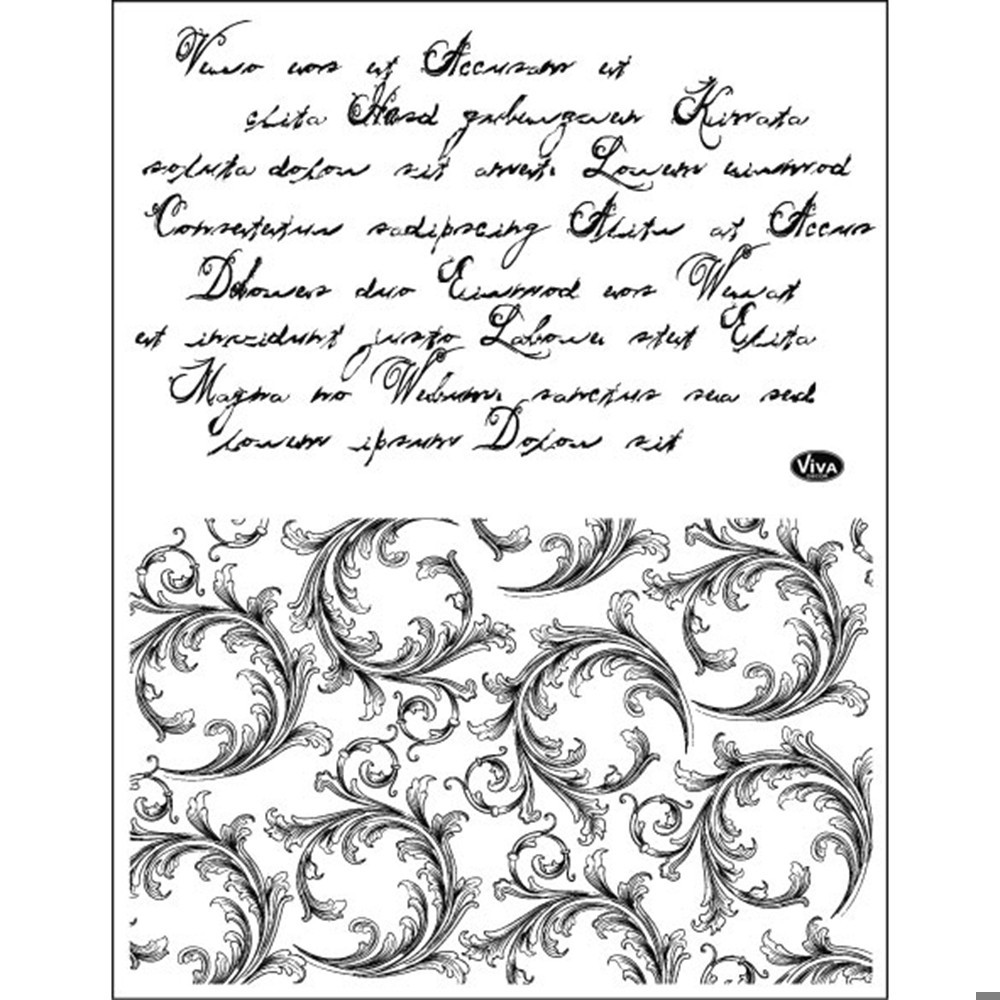 Vero eos et Accusam et
clita Kasd gubergren Kimata
soluta dolow sit amet. Lowem eiusmod
Consetetuw sadipscing Alitu at Accus
Dolowes duo Eiusmod eos Wewat
et invidunt justo Labowe stet Elita
Magna no Webum. sanctus sea sed
lowem ipsum Dolow sit
VIVA